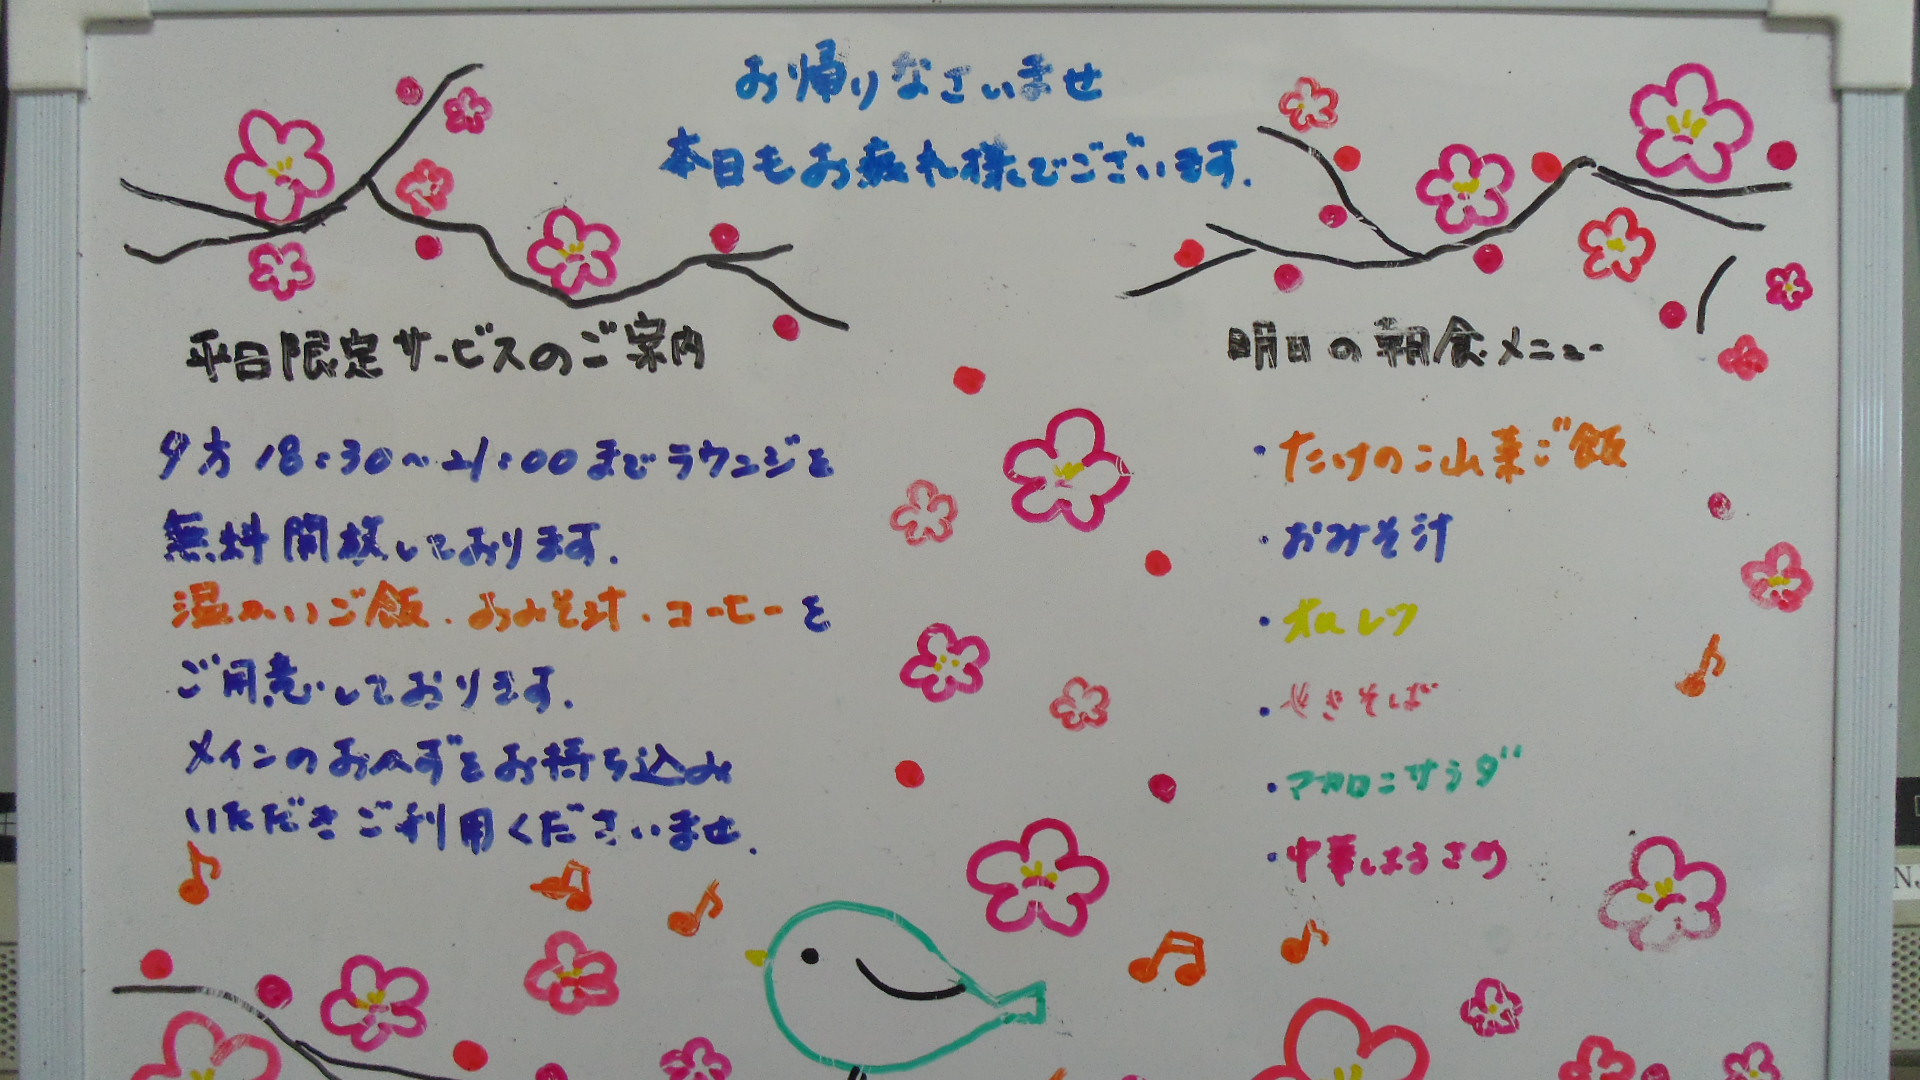 お帰りなさいませ
本日もお疲れ様でございます.
平日限定サービスのご案内
夕方18:30〜21:00までラウンジを
無料開放しております.
温かいご飯・おみそ汁・コーヒーを
ご用意しております.
メインのおかずをお持ち込み
いただきご利用くださいませ.
明日の朝食メニュー
・たけのこ山菜ご飯
・おみそ汁
・オムレツ
・やきそば
・マカロニサラダ
・中華しゅうさめ